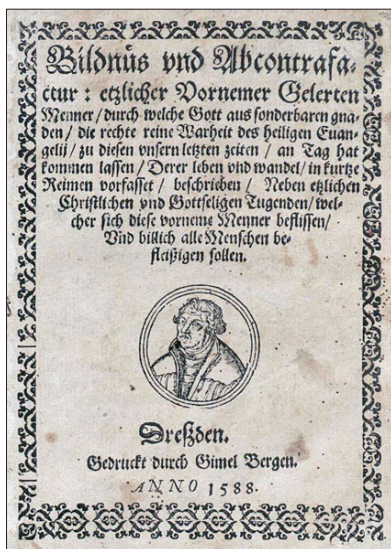 Bildnüs vnd Abcontrafa-
ctur: etzlicher Vornemer Gelerten
Menner/ durch welche Gott aus sonderbaren gna-
den/ die rechte reine Warheit des heiligen Euan-
gelij/ zu diesen vnsern letzten zeiten/ an Tag hat
kommen lassen/ Derer leben vnd wandel/ in kurtze
Reimen vorfasset/ beschrieben/ Neben etzlichen
Christlichen vnd Gottseligen Tugenden/ wel-
cher sich diese vorneme Menner beflissen/
Vnd billich alle Menschen be-
fleißigen sollen.
Dreßden.
Gedruckt durch Gimel Bergen.
ANNO 1588.